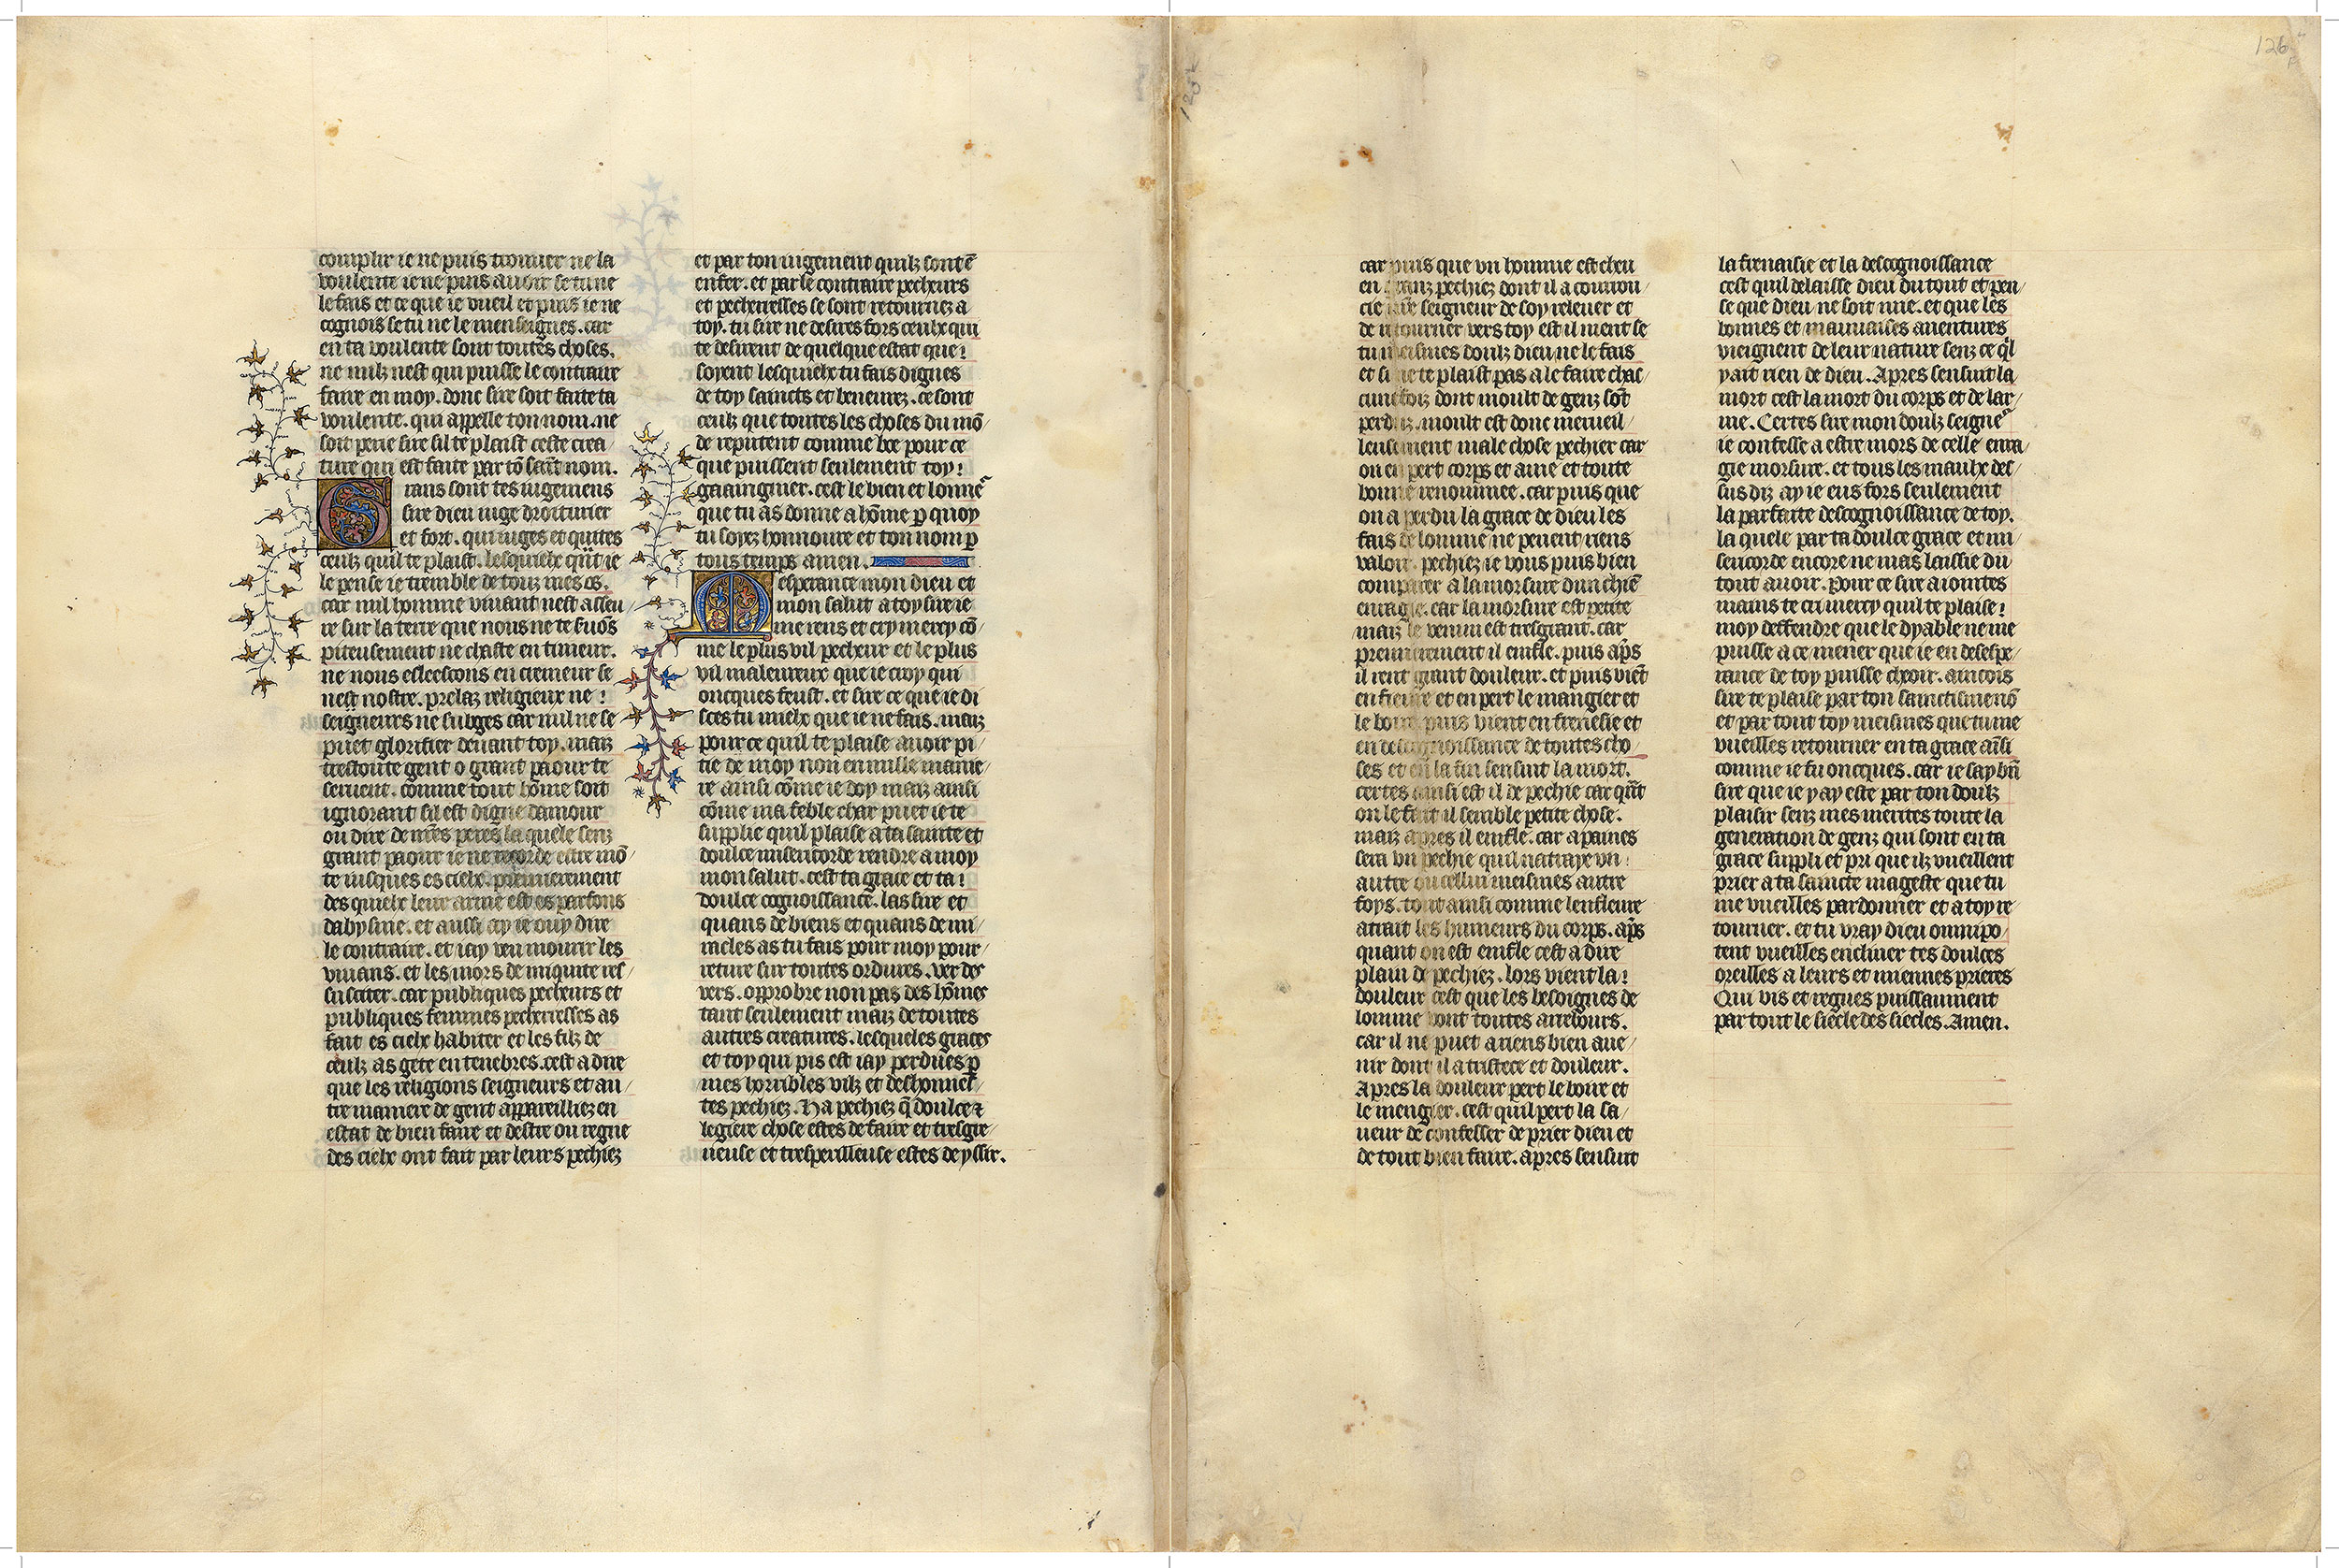 complir ie ne puis trouuer ne la
voulente ie ne puis auoir se tu ne
le fais et ce que ie vueil et puis ie ne
cognois se tu ne le menseignes. car
en ta voulente sont toutes choses.
ne nulz nest qui puisse le contraire
faire en moy. donc sire soit faite ta
voulente. qui appelle ton nom. ne
soit perie sire sil te plaist ceste crea
ture qui est faite par tō saīt nom.
Grans sont tes iugemens
sire dieu iuge droiturier
et fort. qui iuges et quites
ceulz quil te plaist. lesquielx qūt ie
le pense ie tremble de touz mes os.
car nul homme viuant nest asseu /
re sur la terre que nous ne te seruōs
piteusement ne chaste en timeur.
ne nous esleescons en cremeur se
nest nostre. prelaz religieux ne !
seigneurs ne subges car nul ne se
puet glorifier deuant toy. maiz
trestoute gent o grant paour te
seruent. comme tout hōme soit
ignorant sil est digne damour
ou dire de mes peres la quele senz
grant paour ie ne recorde estre mō /
te iusques es cielx. premierement
des quielx leur arme est es parfons
dabysme. et aussi ay ie ouy dire
le contraire. et iay veu mourir les
viuans. et les mors de iniquite res /
susciter. car publiques pecheurs et
publiques femmes pecherresses as
fait es cielx habiter et les filz de
ceulz as gete en tenebres. cest a dire
que les religions seigneurs et au /
tre maniere de gent appareilliez en
estat de bien faire et destre ou regne
des cielx ont fait par leurs pechiez
et par ton iugement quilz sont ē
enfer. et par le contraire pecheurs
et pecherresses se sont retournez a
toy. tu sire ne desires fors ceulx qui
te desirent de quelque estat que !
soyent lesquielx tu fais dignes
de toy saincts et beneurez. ce sont
ceulz que toutes les choses du mō /
de reputent comme boe pour ce
que puissent seulement toy !
gaaingnier. cest le bien et lonne᷑
que tu as donne a hōme ꝑ quoy
tu soyez honnoure et ton nom ꝑ
tous temps amen.
Mesperance mon dieu et
mon salut a toy sire ie
me rens et cry mercy cō /
me le plus vil pecheur et le plus
vil maleureux que ie croy qui
oncques feust. et sire ce que ie di
sces tu mielx que ie ne fais. maiz
pour ce quil te plaise auoir pi /
tie de moy non en nulle manie /
re ainsi cōme ie doy maiz ainsi
cōme ma feble char puet ie te
supplie quil plaise a ta saincte et
doulce misericorde rendre a moy
mon salut. cest ta grace et ta !
doulce cognoissance. las sire et
quans de biens et quans de mi /
racles as tu fais pour moy pour /
reture sur toutes ordures. ver des
vers. opprobre non pas des hōmes
tant seulement maiz de toutes
autres creatures. lesqueles graces
et toy qui pis est iay perdues ꝑ
mes horribles vilz et deshonnes /
tes pechiez. Ha pechiez q̄ doulce ⁊
legiere chose estes de faire et tresgrie /
ueuse et tresperilleuse estes de yssir.
126
car puis que vn homme est cheu
en granz pechiez dont il a courrou /
cie seigneur de soy releuer et
de retourner vers toy est il ment se
tu meismes doulz dieu ne le fais
et si ne te plaist pas a le faire chas /
cune foiz dont moult de genz sōt
perduz. moult est donc merueil /
leusement male chose pechier car
on en pert corps et ame et toute
bonne renommee. car puis que
on a perdu la grace de dieu les
fais de lomme ne peuent riens
valoir. pechiez ie vous puis bien
comparer a la morsure dun chiē
enragie. car la morsure est petite
maiz le venim est tresgrant. car
premierement il enfle. puis ap̄s
il rent grant douleur. et puis viēt
en fieure et en pert le mangier et
le boire puis vient en frenesie et
en descognoissance de toutes cho /
ses et en la fin sensuit la mort.
certes ainsi est il de pechie car qūt
on le fait il semble petite chose.
maiz apres il enfle. car a paines
sera vn pechie quil natraye vn !
autre ou cellui meismes autre
foys. tout ainsi comme lenfleure
atrait les humeurs du corps. ap̄s
quant on est enfle cest a dire
plain de pechiez. lors vient la !
douleur cest que les besoignes de
lomme vont toutes arrebours.
car il ne puet a riens bien aue /
nir dont il a tristece et douleur.
Apres la douleur pert le boire et
le mengier. cest quil pert la sa /
ueur de confesser de prier dieu et
de tout bien faire. apres sensuit
la frenaisie et la descognoissance
cest quil delaisse dieu du tout et pen /
se que dieu ne soit mie. et que les
bonnes et mauuaises auentures
vieignent de leur nature senz ce q̄l
y ait rien de dieu. Apres sensuit la
mort cest la mort du corps et de lar /
me. Certes sire mon doulz seigne᷑
ie confesse a estre mors de celle enra /
gie morsure. et tous les maulx des /
sus diz ay ie eus fors seulement
la parfaite descognoissance de toy.
la quele par ta doulce grace et mi /
sericorde encore ne mas laissie du
tout auoir. pour ce sire a iointes
mains te cri mercy quil te plaise !
moy deffendre que le dyable ne me
puisse a ce mener que ie en desespe /
rance de toy puisse cheoir. aincois
sire te plaise par ton sainctisme nō
et par tout toy meismes que tu me
vueilles retourner en ta grace aīsi
comme ie fu oncques. car ie say bn̄
sire que ie y ay este par ton doulz
plaisir senz mes merites toute la
generation de genz qui sont en ta
grace suppli et pri que ilz vueillent
prier a ta saincte mageste que tu
me vueilles pardonner et a toy re /
tourner. et tu vray dieu omnipo /
tent vueilles encliner tes doulces
oreilles a leurs et miennes prieres
Qui vis et regnes puissaument
par tout le siecle des siecles. Amen.